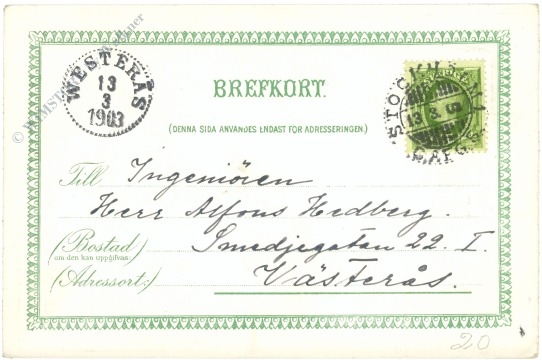 WESTERÅS
13
3
1903
BREFKORT.
(DENNA SIDA ANVANDES ENDAST FÖR ADRESSERINGEN.)
STOCKHOLM
13 3
Till Ingeniören
Herr Alfons Hedberg.
(Bostad
om den kan uppgifvas:) Smedjegatan 22. I.
(Adressort:) Västerås.
20